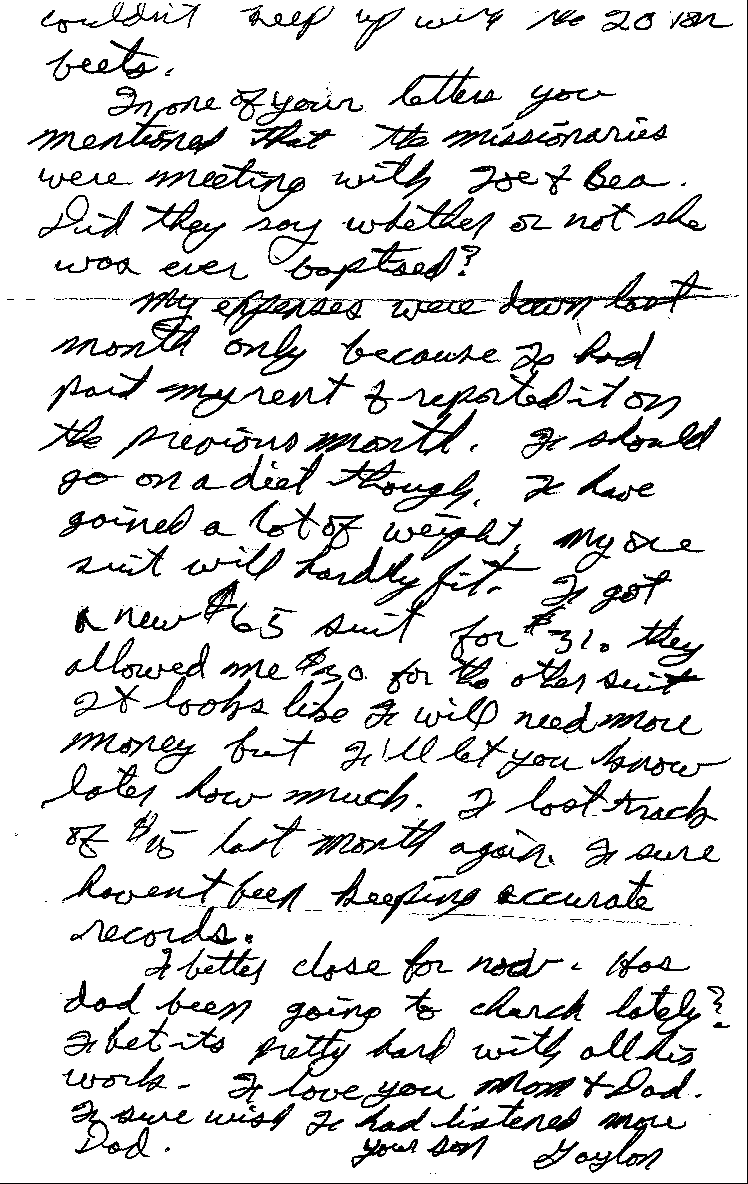 couldn't keep up with the 20 ton
beets.
In one of your letters you
mentioned that the missionaries
were meeting with Joe & Bea.
Did they say whether or not she
was ever baptised?
My expenses were down last
month only because I had
paid my rent & reported it on
the previous month. I should
go on a diet though. I have
gained a lot of weight, my one
suit will hardly fit. I got
a new $65 suit for $31. they
allowed me $30 for the other suit
It looks like I will need more
money but I'll let you know
later how much. I lost track
of $15 last month again. I sure
havent been keeping accurate
records.
I better close for now. Has
dad been going to church lately?
I bet its pretty hard with all his
work. I love you Mom & Dad.
I sure wish I had listened more
Dad. your son Gaylon